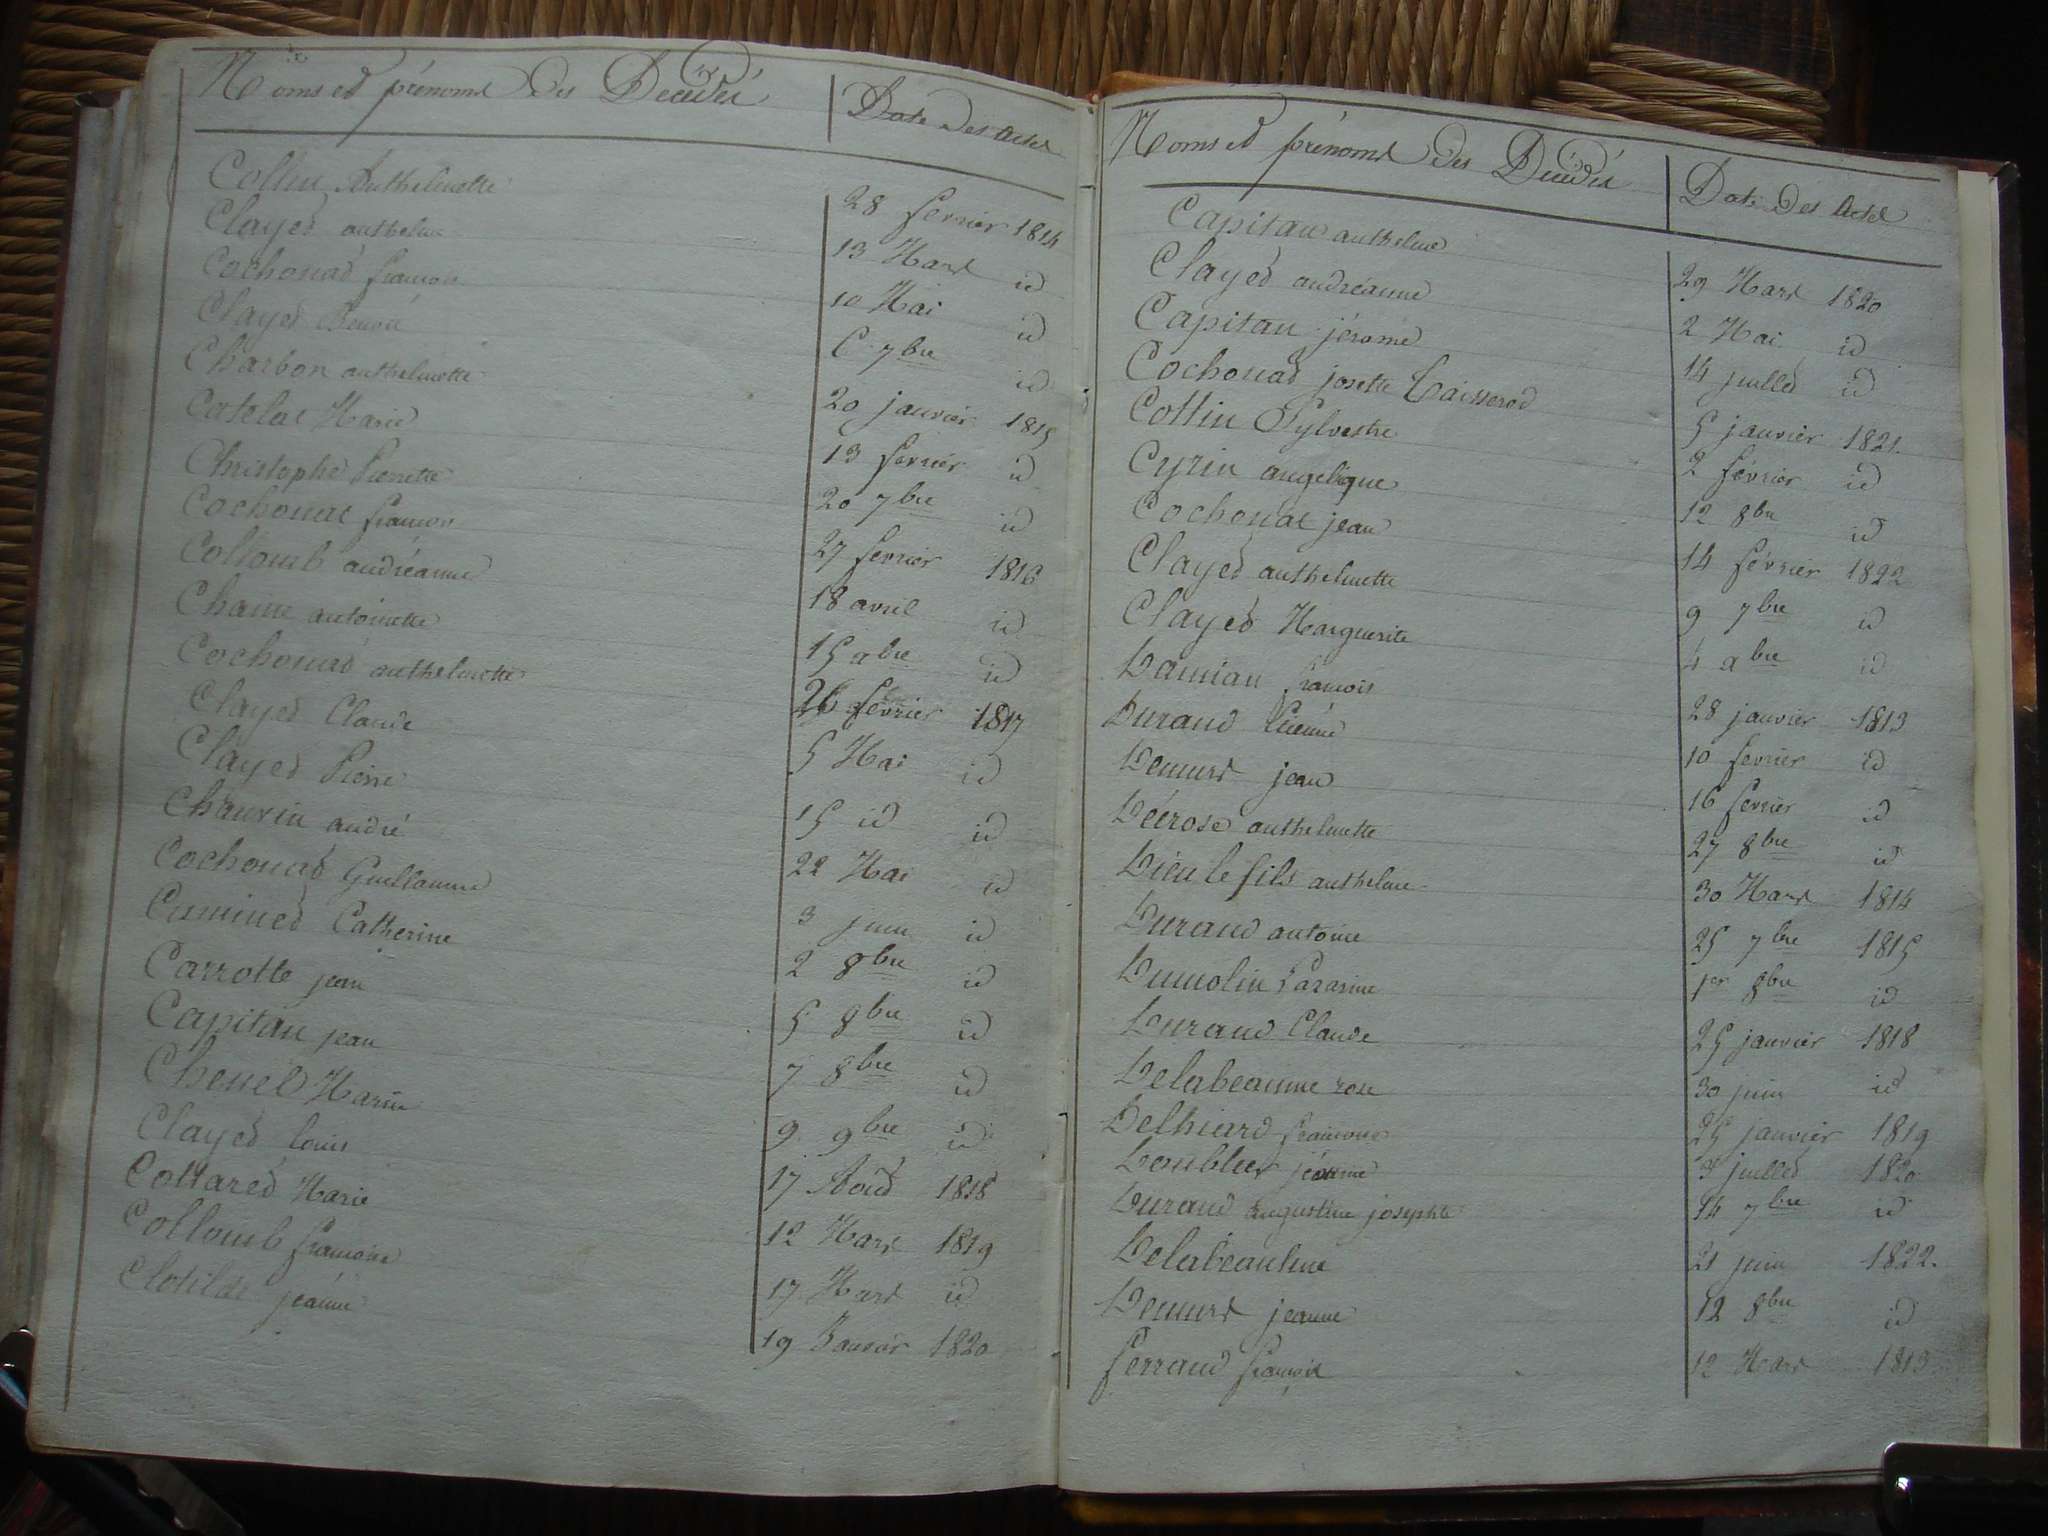 Noms et prénoms des Décédés Date des Actes
Collin Anthelmette 28 fevrier 1814
Clayet anthelme 13 Mars id
Cochonat francois 10 Mai id
Clayet Benoit 6 7bre id
Charbon anthelmette 20 janvier 1815
Catelac Marie 13 fevrier id
Christophe Pierrette 20 7bre id
Cochonat francois 27 fevrier 1816
Collomb andréanne 18 avril id
Chanu antoinette 15 9bre id
Cochonat anthelmette 26 fevrier 1817
Clayet Claude 5 Mai id
Clayet Pierre 15 id id
Chauvin andré 22 Mai id
Cochonat Guillaume 3 juin id
Cuminet Catherine 2 8bre id
Carrotte jean 5 8bre id
Capitan jean 7 8bre id
Chenel Marie 9 9bre id
Clayet louis 17 Aout 1818
Collaret Marie 12 Mars 1819
Collomb francoise 17 Mars id
Clotilde jeanne 19 Janvier 1820
Noms et prénoms des Décédés Date des Actes
Capitan anthelme 29 Mars 1820
Clayet andréanne 2 Mai id
Capitan jérome 14 juillet id
Cochonat josette 5 janvier 1821.
Collin Sylvestre 2 février id
Cyrin angelique 12 8bre id
Cochonat jean 14 février 1822
Clayet anthelmette 9 7bre id
Clayet Marguerite 4 9bre id
Damian francois 28 janvier 1813
Durand 10 fevrier id
Demurs jean 16 fevrier id
Décrose anthelmette 27 8bre id
Dieu le fils anthelme 30 Mars 1814
Durand antoine 25 7bre 1815
Dumolin 1er 8bre id
Durand Claude 25 janvier 1818
Delabeaume rose 30 juin id
Delhiard francois 25 janvier 1819
Doublier jeanne 3 juillet 1820
Durand augustine josephte 14 7bre id
Delabeaulme 21 juin 1822.
Demurs jeanne 12 8bre id
ferrand francois 12 Mars 1813